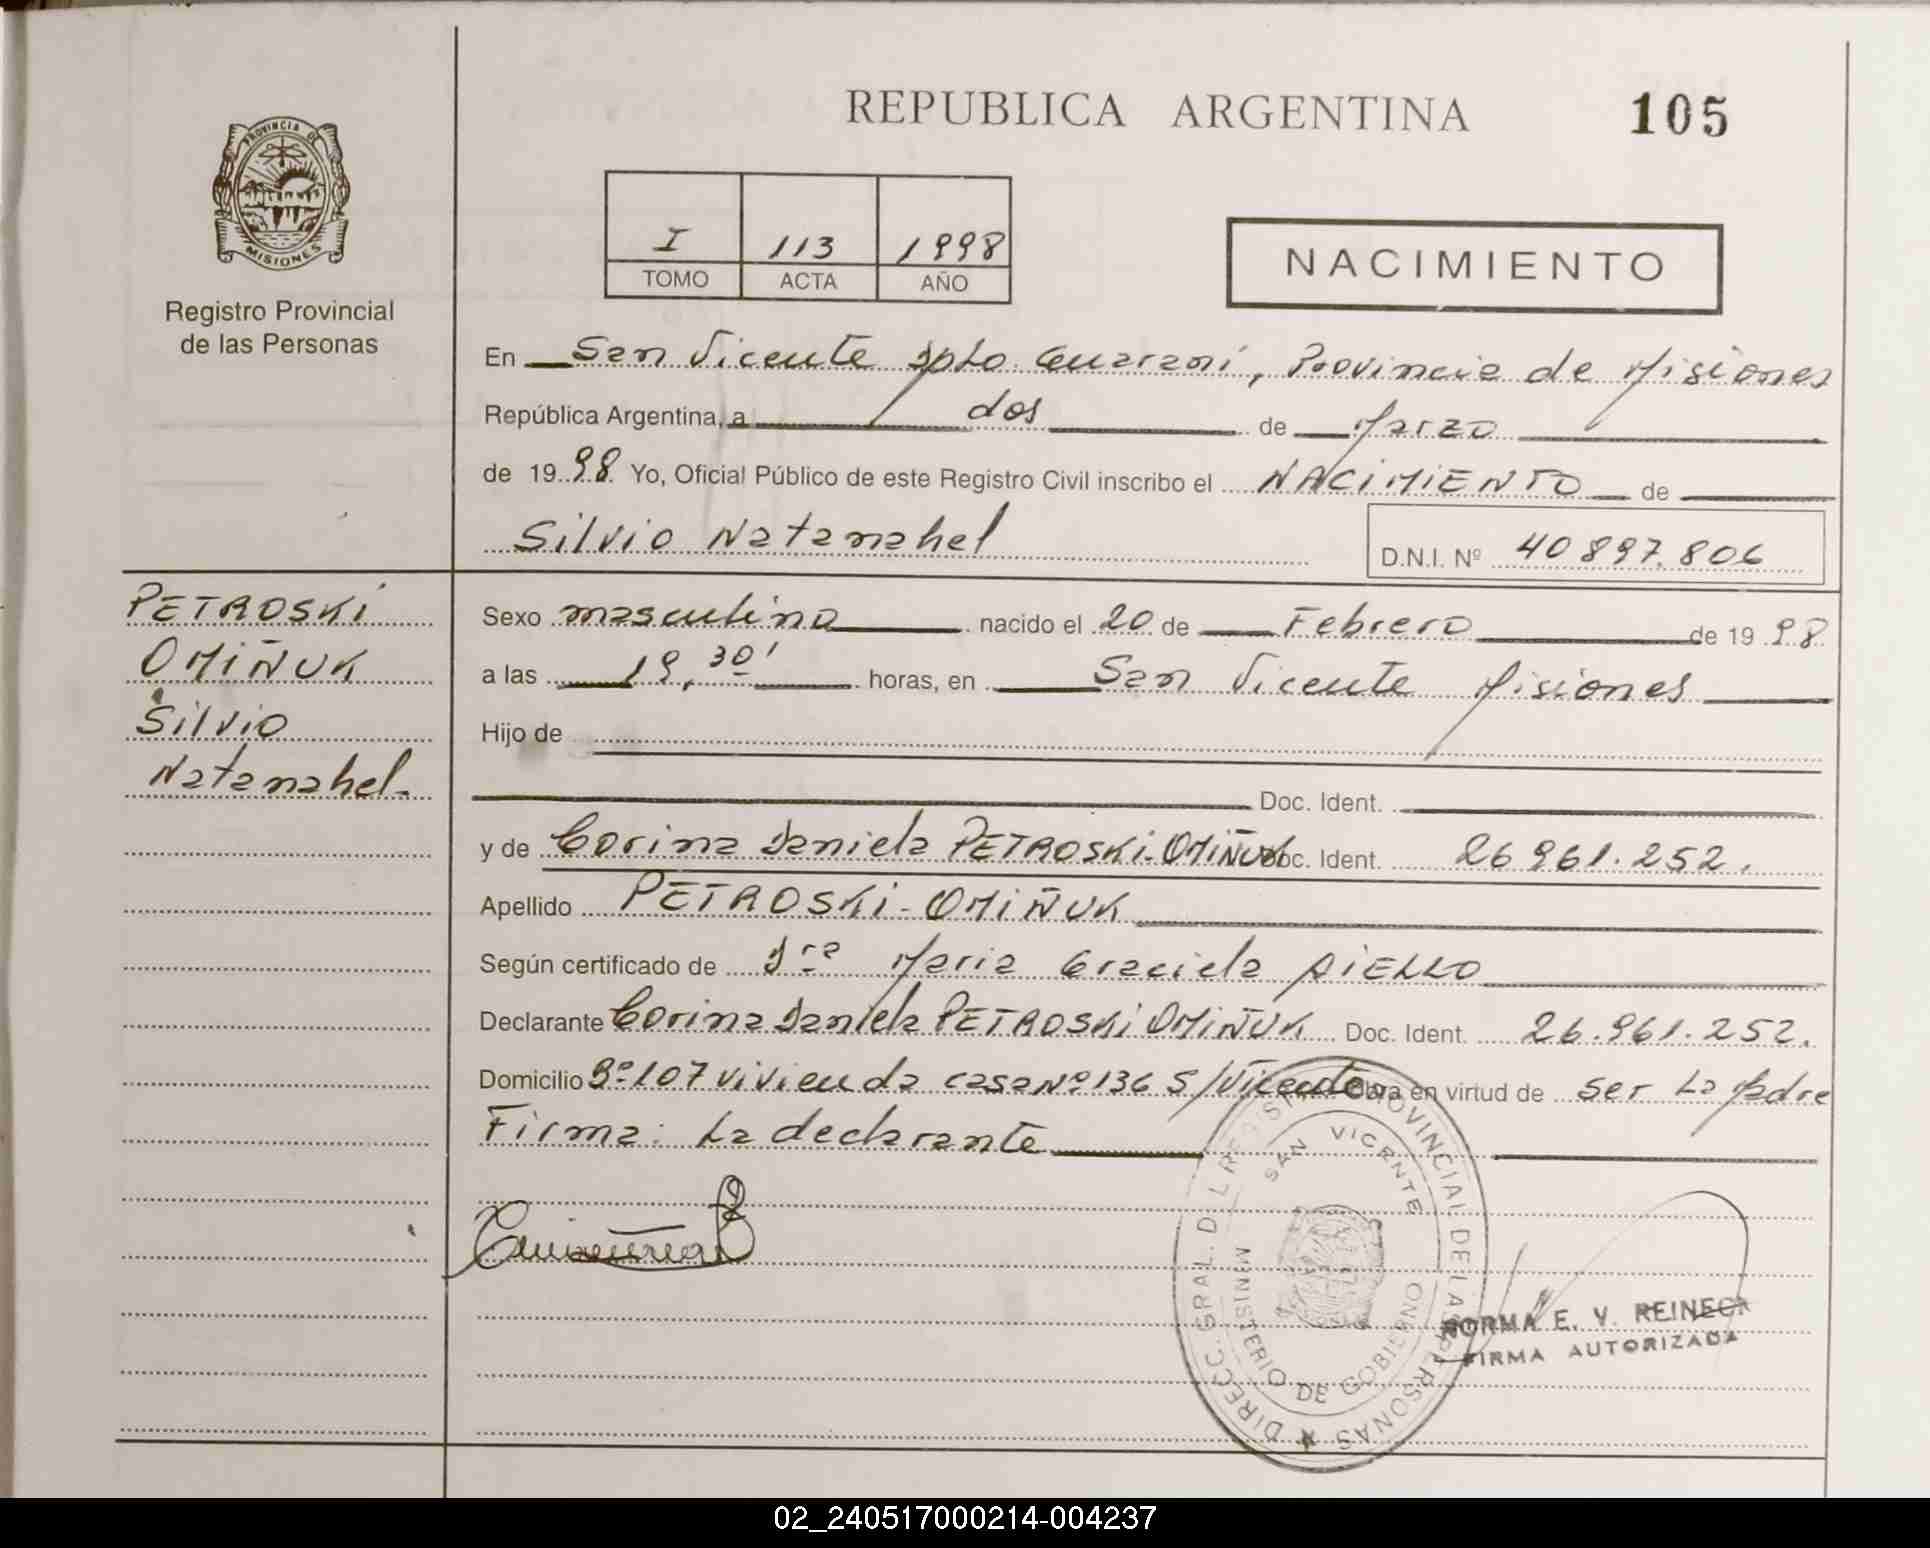 REPUBLICA ARGENTINA
105
PROVINCIA DE
MISIONES
Registro Provincial
de las Personas
I 113 1998
TOMO ACTA AÑO
NACIMIENTO
En San Vicente Dpto. Guaraní, Provincia de Misiones
República Argentina, a dos de Marzo
de 1998 Yo, Oficial Público de este Registro Civil inscribo el NACIMIENTO de
Silvio Natanahel
D.N.I. Nº 40897.806
PETROSKI
OMIÑUK
Silvio
Natanahel.
Sexo masculino nacido el 20 de Febrero de 1998
a las 19,30' horas, en San Vicente Misiones
Hijo de
Doc. Ident.
y de Corina Daniela PETROSKI-OMIÑUK Doc. Ident. 26961.252.
Apellido PETROSKI-OMIÑUK
Según certificado de Dra Maria Graciela AIELLO
Declarante Corina Daniela PETROSKI OMIÑUK Doc. Ident. 26.961.252.
Domicilio Bº 107 vivienda casa Nº 136 S/Vicente Obra en virtud de ser La Madre
Firma: La declarante
DIRECC. GRAL. DEL REGISTRO PROVINCIAL DE LAS PERSONAS
SAN VICENTE
MINISTERIO DE GOBIERNO
NORMA E. V. REINECK
FIRMA AUTORIZADA
02_240517000214-004237